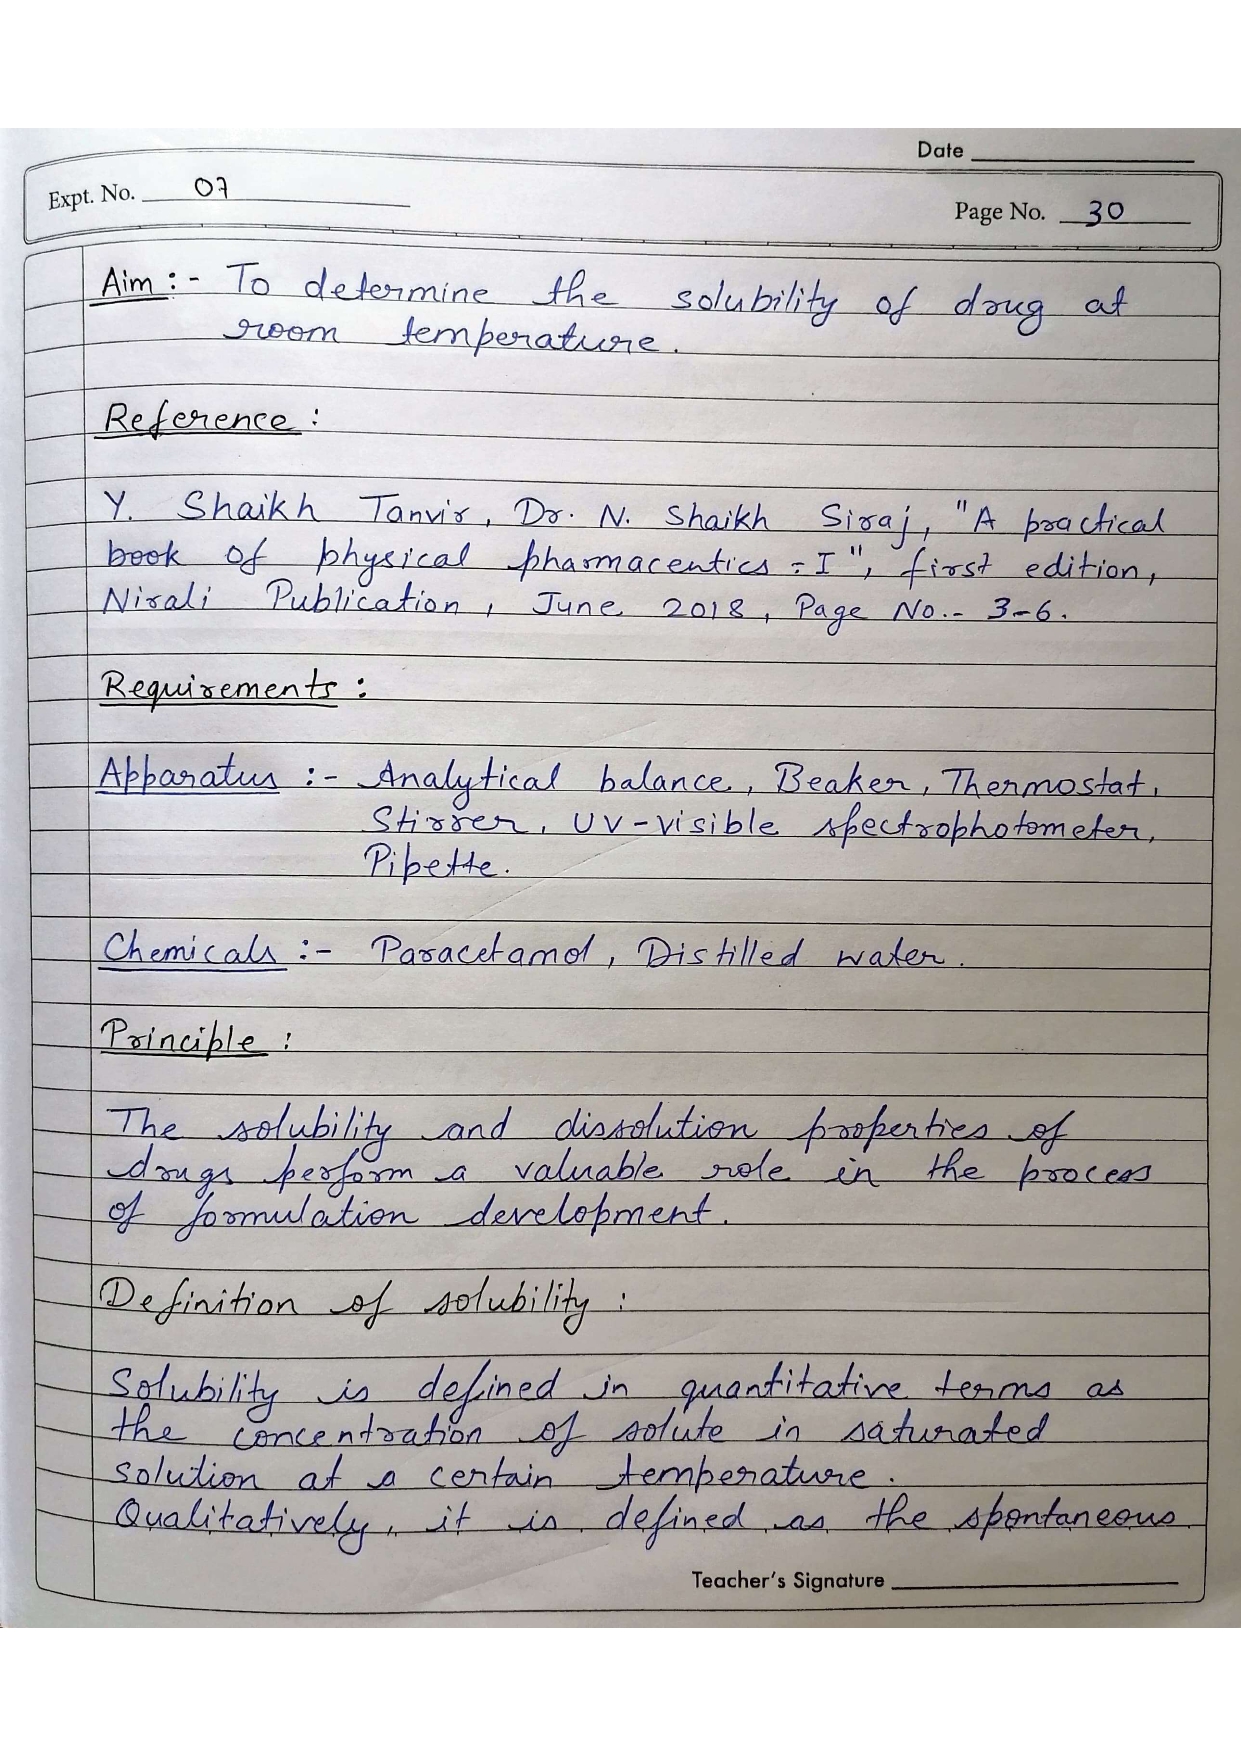 Date
Expt. No. 07
Page No. 30
Aim :- To determine the solubility of drug at
room temperature.
Reference :
Y. Shaikh Tanvir, Dr. N. Shaikh Siraj, "A practical
book of physical pharmaceutics - I", first edition,
Nirali Publication, June 2018, Page No.- 3-6.
Requirements :
Apparatus :- Analytical balance, Beaker, Thermostat,
Stirrer, UV-visible spectrophotometer,
Pipette.
Chemicals :- Paracetamol, Distilled water.
Principle :
The solubility and dissolution properties of
drugs perform a valuable role in the process
of formulation development.
Definition of solubility :
Solubility is defined in quantitative terms as
the concentration of solute in saturated
solution at a certain temperature.
Qualitatively, it is defined as the spontaneous
Teacher's Signature